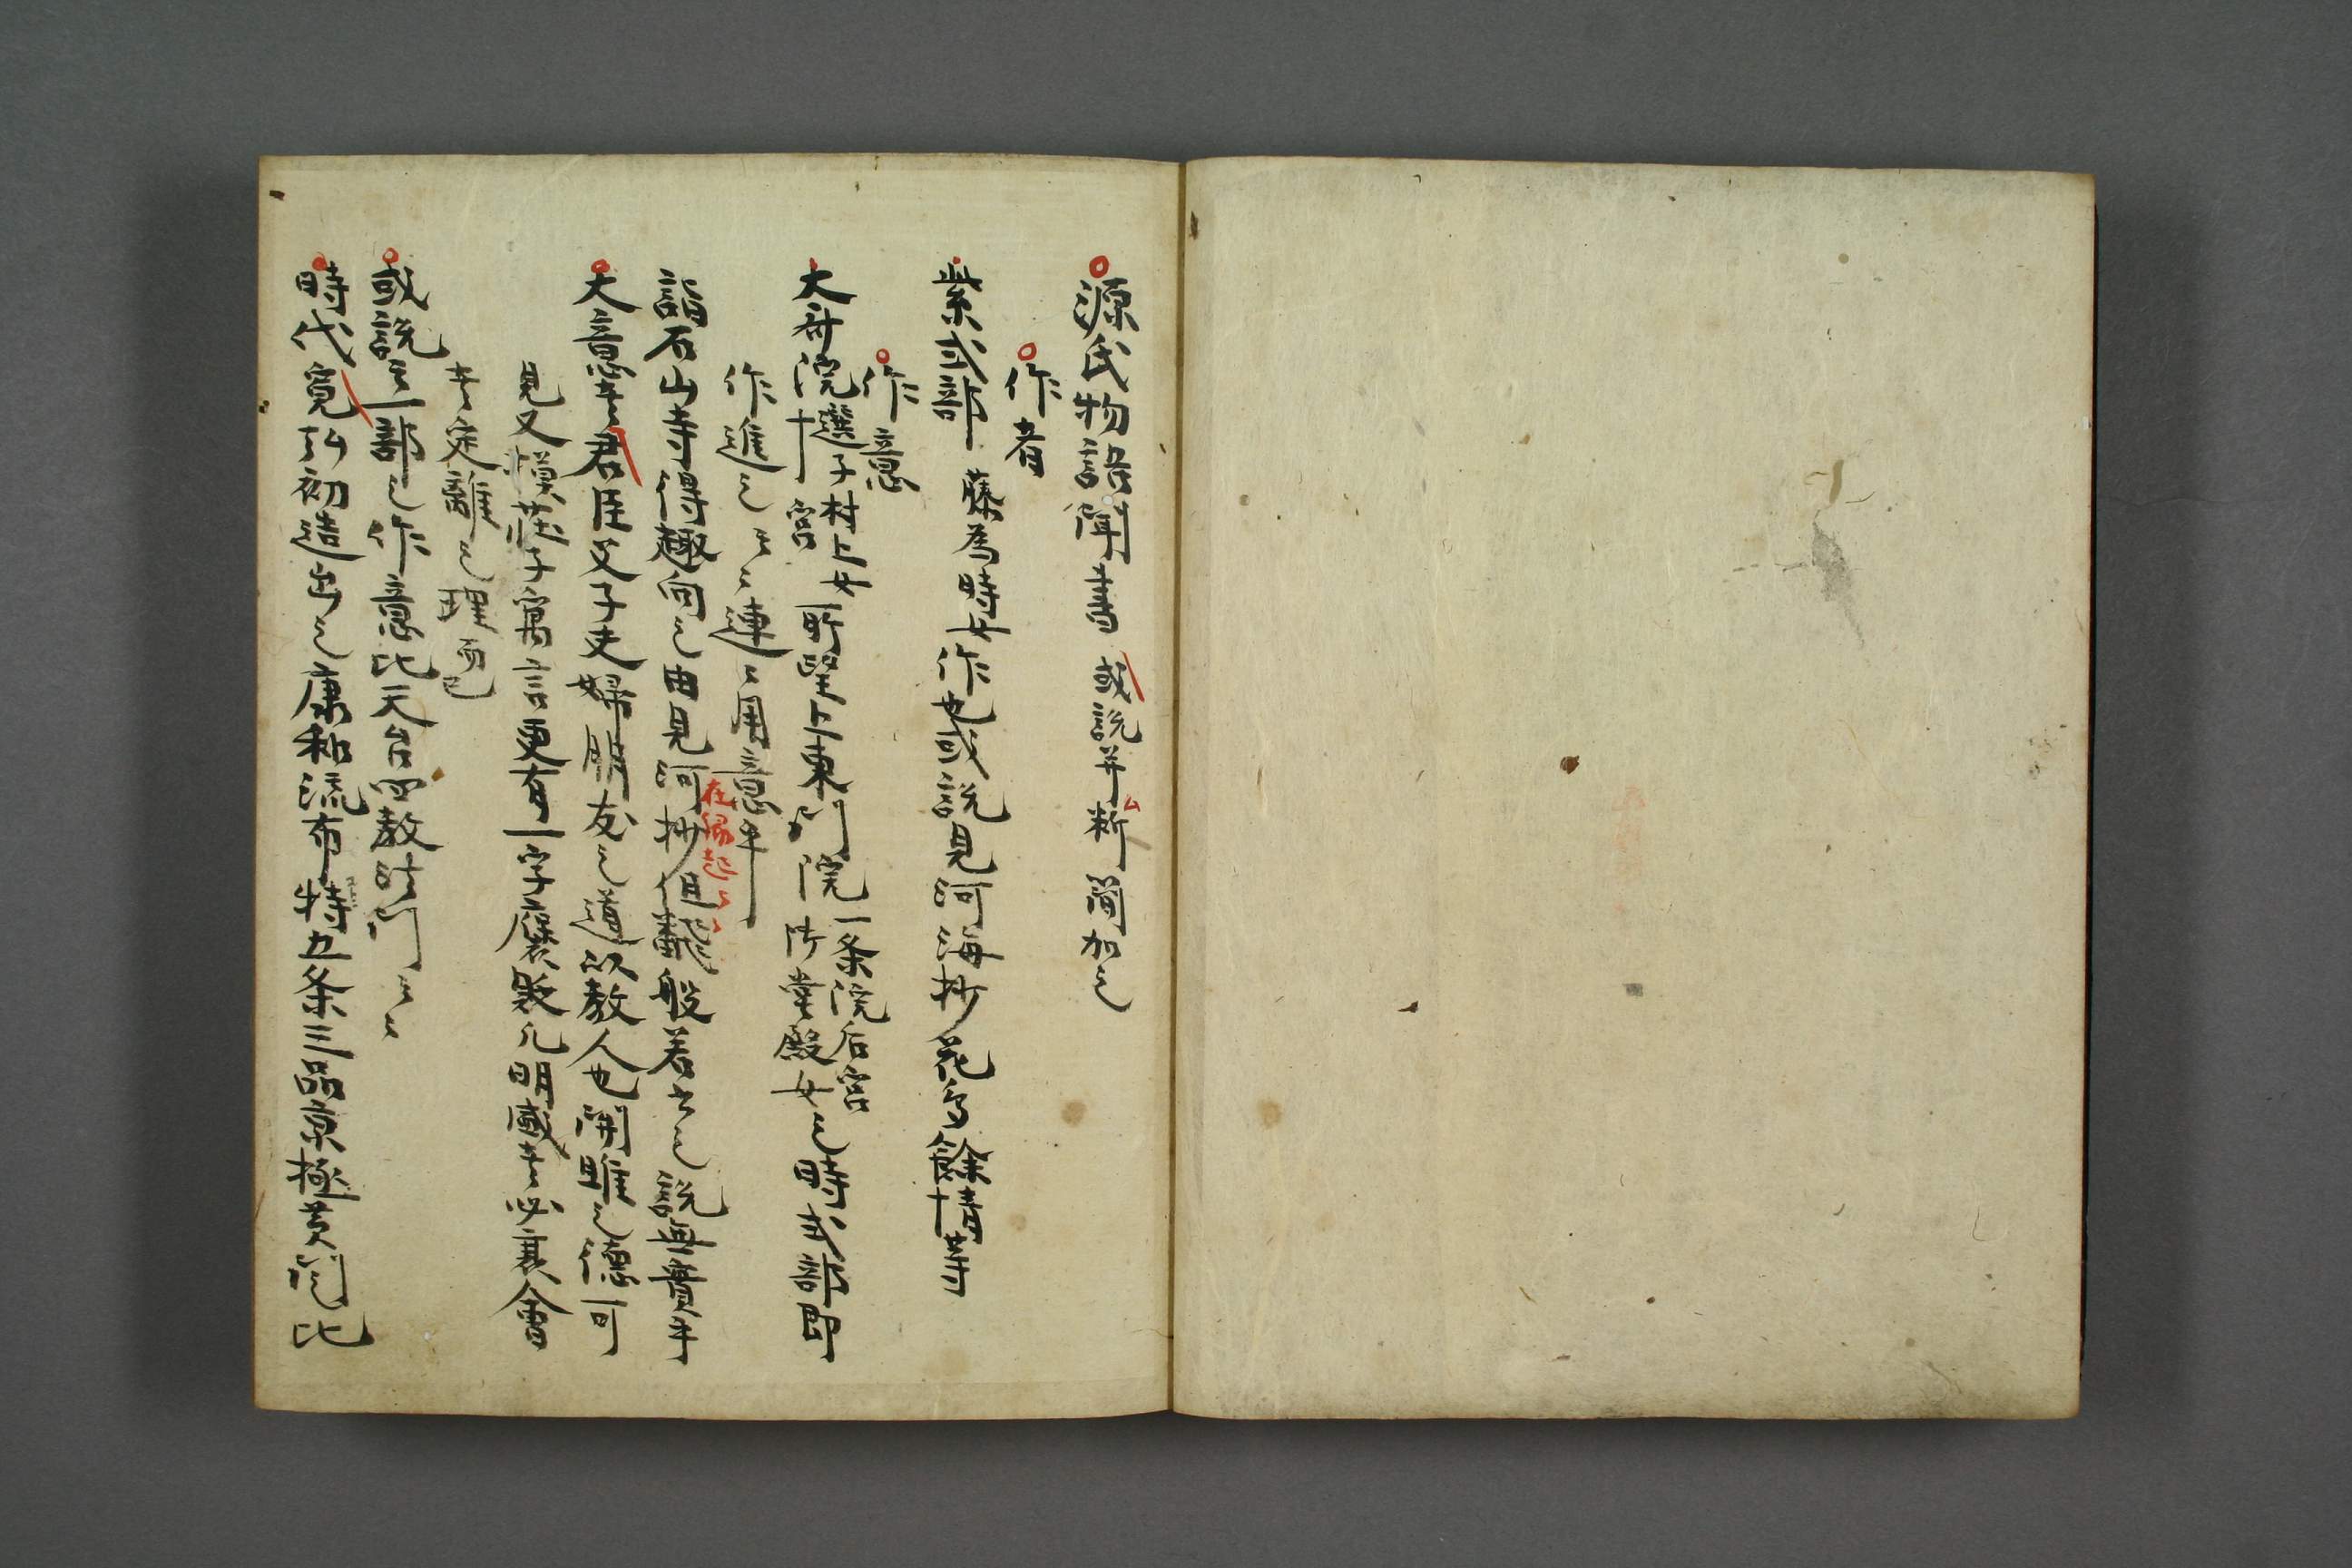 源氏物語聞書 或説并料簡加之
作者
紫式部 藤為時女 作也或説見河海抄花鳥餘情等
作意
大斎院 選子村上女十宮 所望上東門院 一条院后宮御堂殿女 之時式部即
作進之云々連々用意乎
詣石山寺得趣向之由見河抄但飜般若云之説無實乎
在縁起云々
大意者君臣父子夫婦朋友之道以教人也開雎之德可
見又模荘子寓言更有一字褒貶凡明盛者必衰會
者定離之理而已
或説云一部之作意比天台四教法門云々
時代寛弘初造出之康和流布 特五条三品京極黄門比